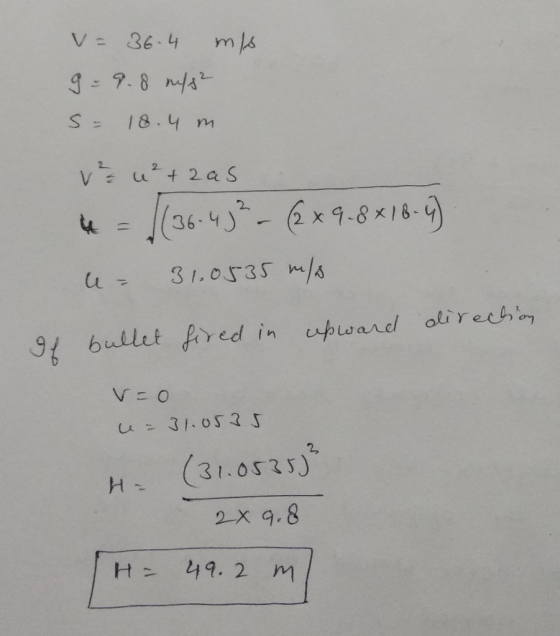 V = 36.4 m/s
g = 9.8 m/s²
S = 18.4 m
v² = u² + 2as
u = √((36.4)² - (2 × 9.8 × 18.4)
u = 31.0535 m/s
If bullet fired in upward direction
V = 0
u = 31.0535
H = (31.0535)²
2 × 9.8
H = 49.2 m